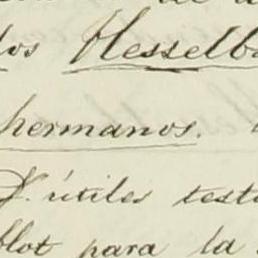 los Hesselb
hermanos.
D. útiles test
blot para la